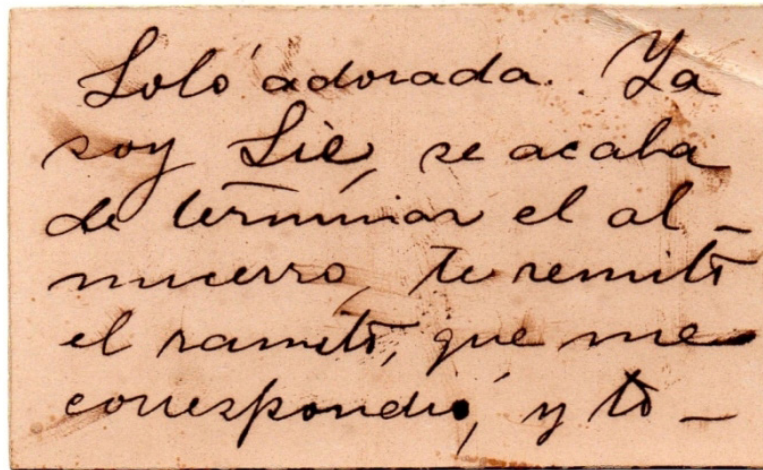 Loló adorada. Ya
soy Lic, se acaba
de terminar el al-
muerzo, te remito
el ramito, que me
correspondió, y to-